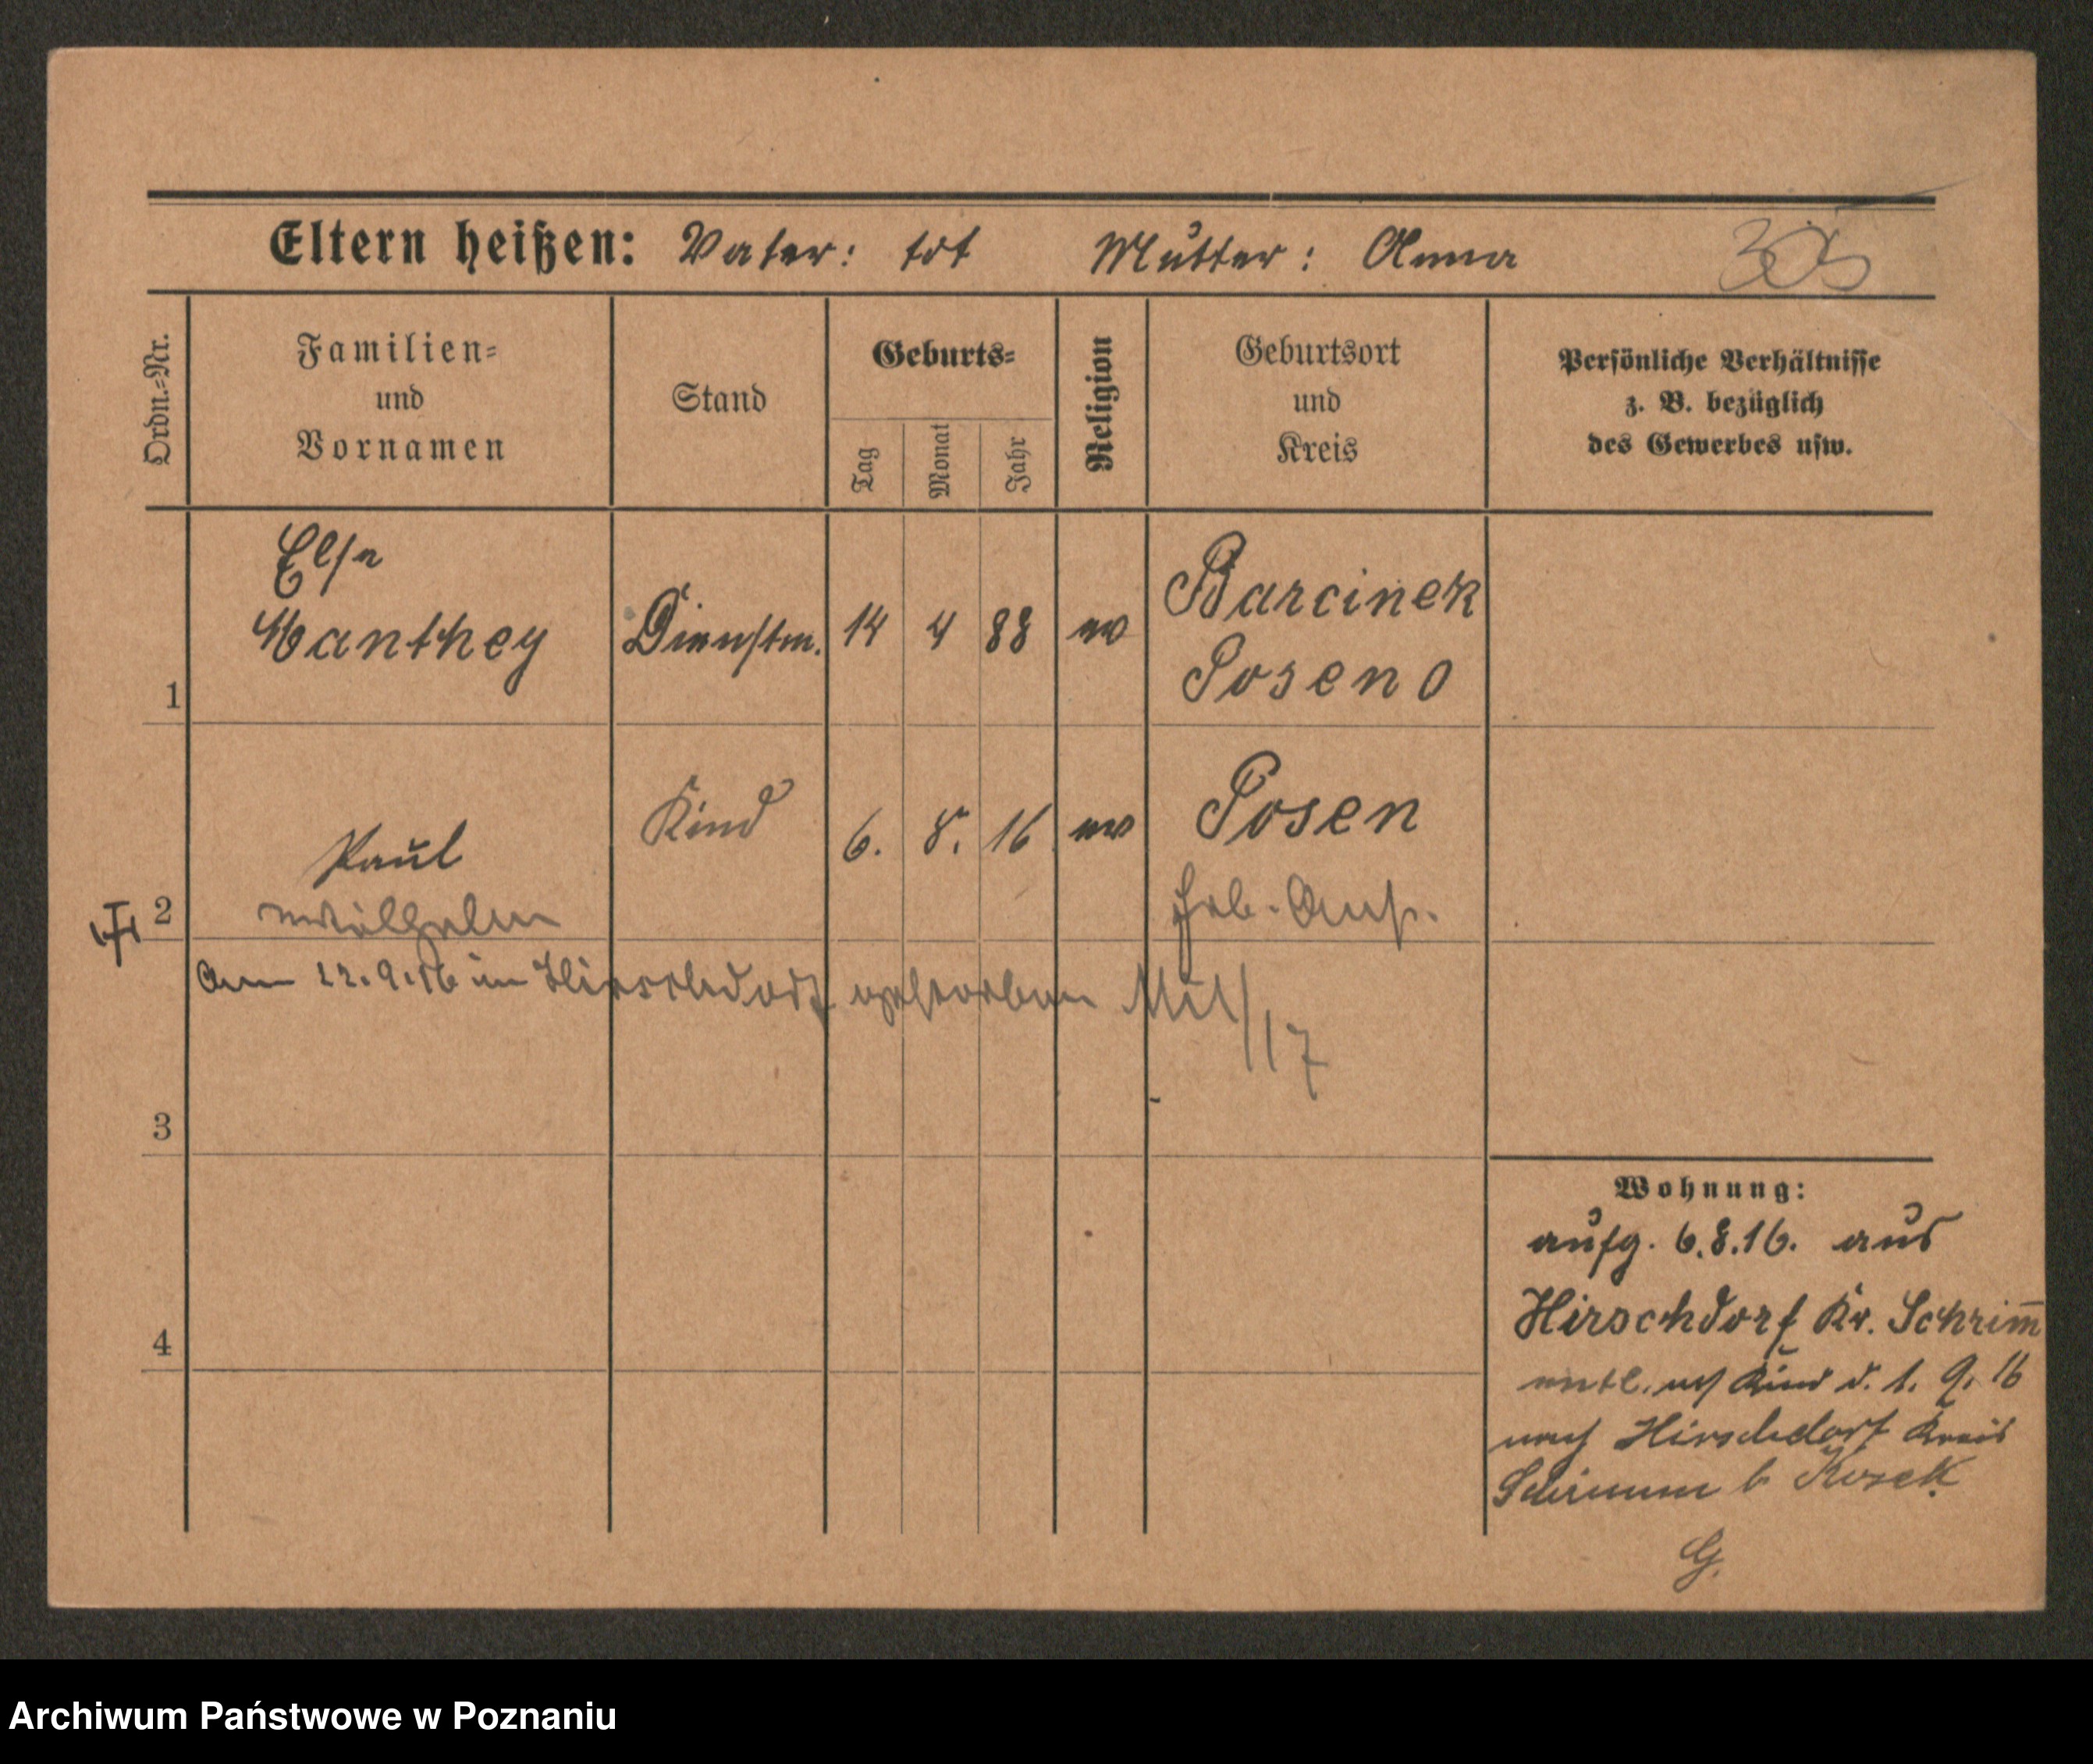 Eltern heißen: Vater: tot Mutter: Anna
Ordn.-Nr.
Familien-
und
Vornamen
Stand
Geburts-
Tag
Monat
Jahr
Religion
Geburtsort
und
Kreis
Persönliche Verhältnisse
z. B. bezüglich
des Gewerbes usw.
1
Else
Manthey
Dienstm.
14
4
88
ev
Barcinek
Posen O
2
Paul
Wilhelm
Kind
6.
8.
16
ev
Posen
Heb. Anst.
Am 22.9.16 in Hirschdorf gestorben
/17
3
4
Wohnung:
aufg. 6.8.16. aus
Hirschdorf Kr. Schrim̅
entl. Kind d. 1. 9. 16
nach Hirschdorf Kreis
Schrimm b Kosek
G.
Archiwum Państwowe w Poznaniu